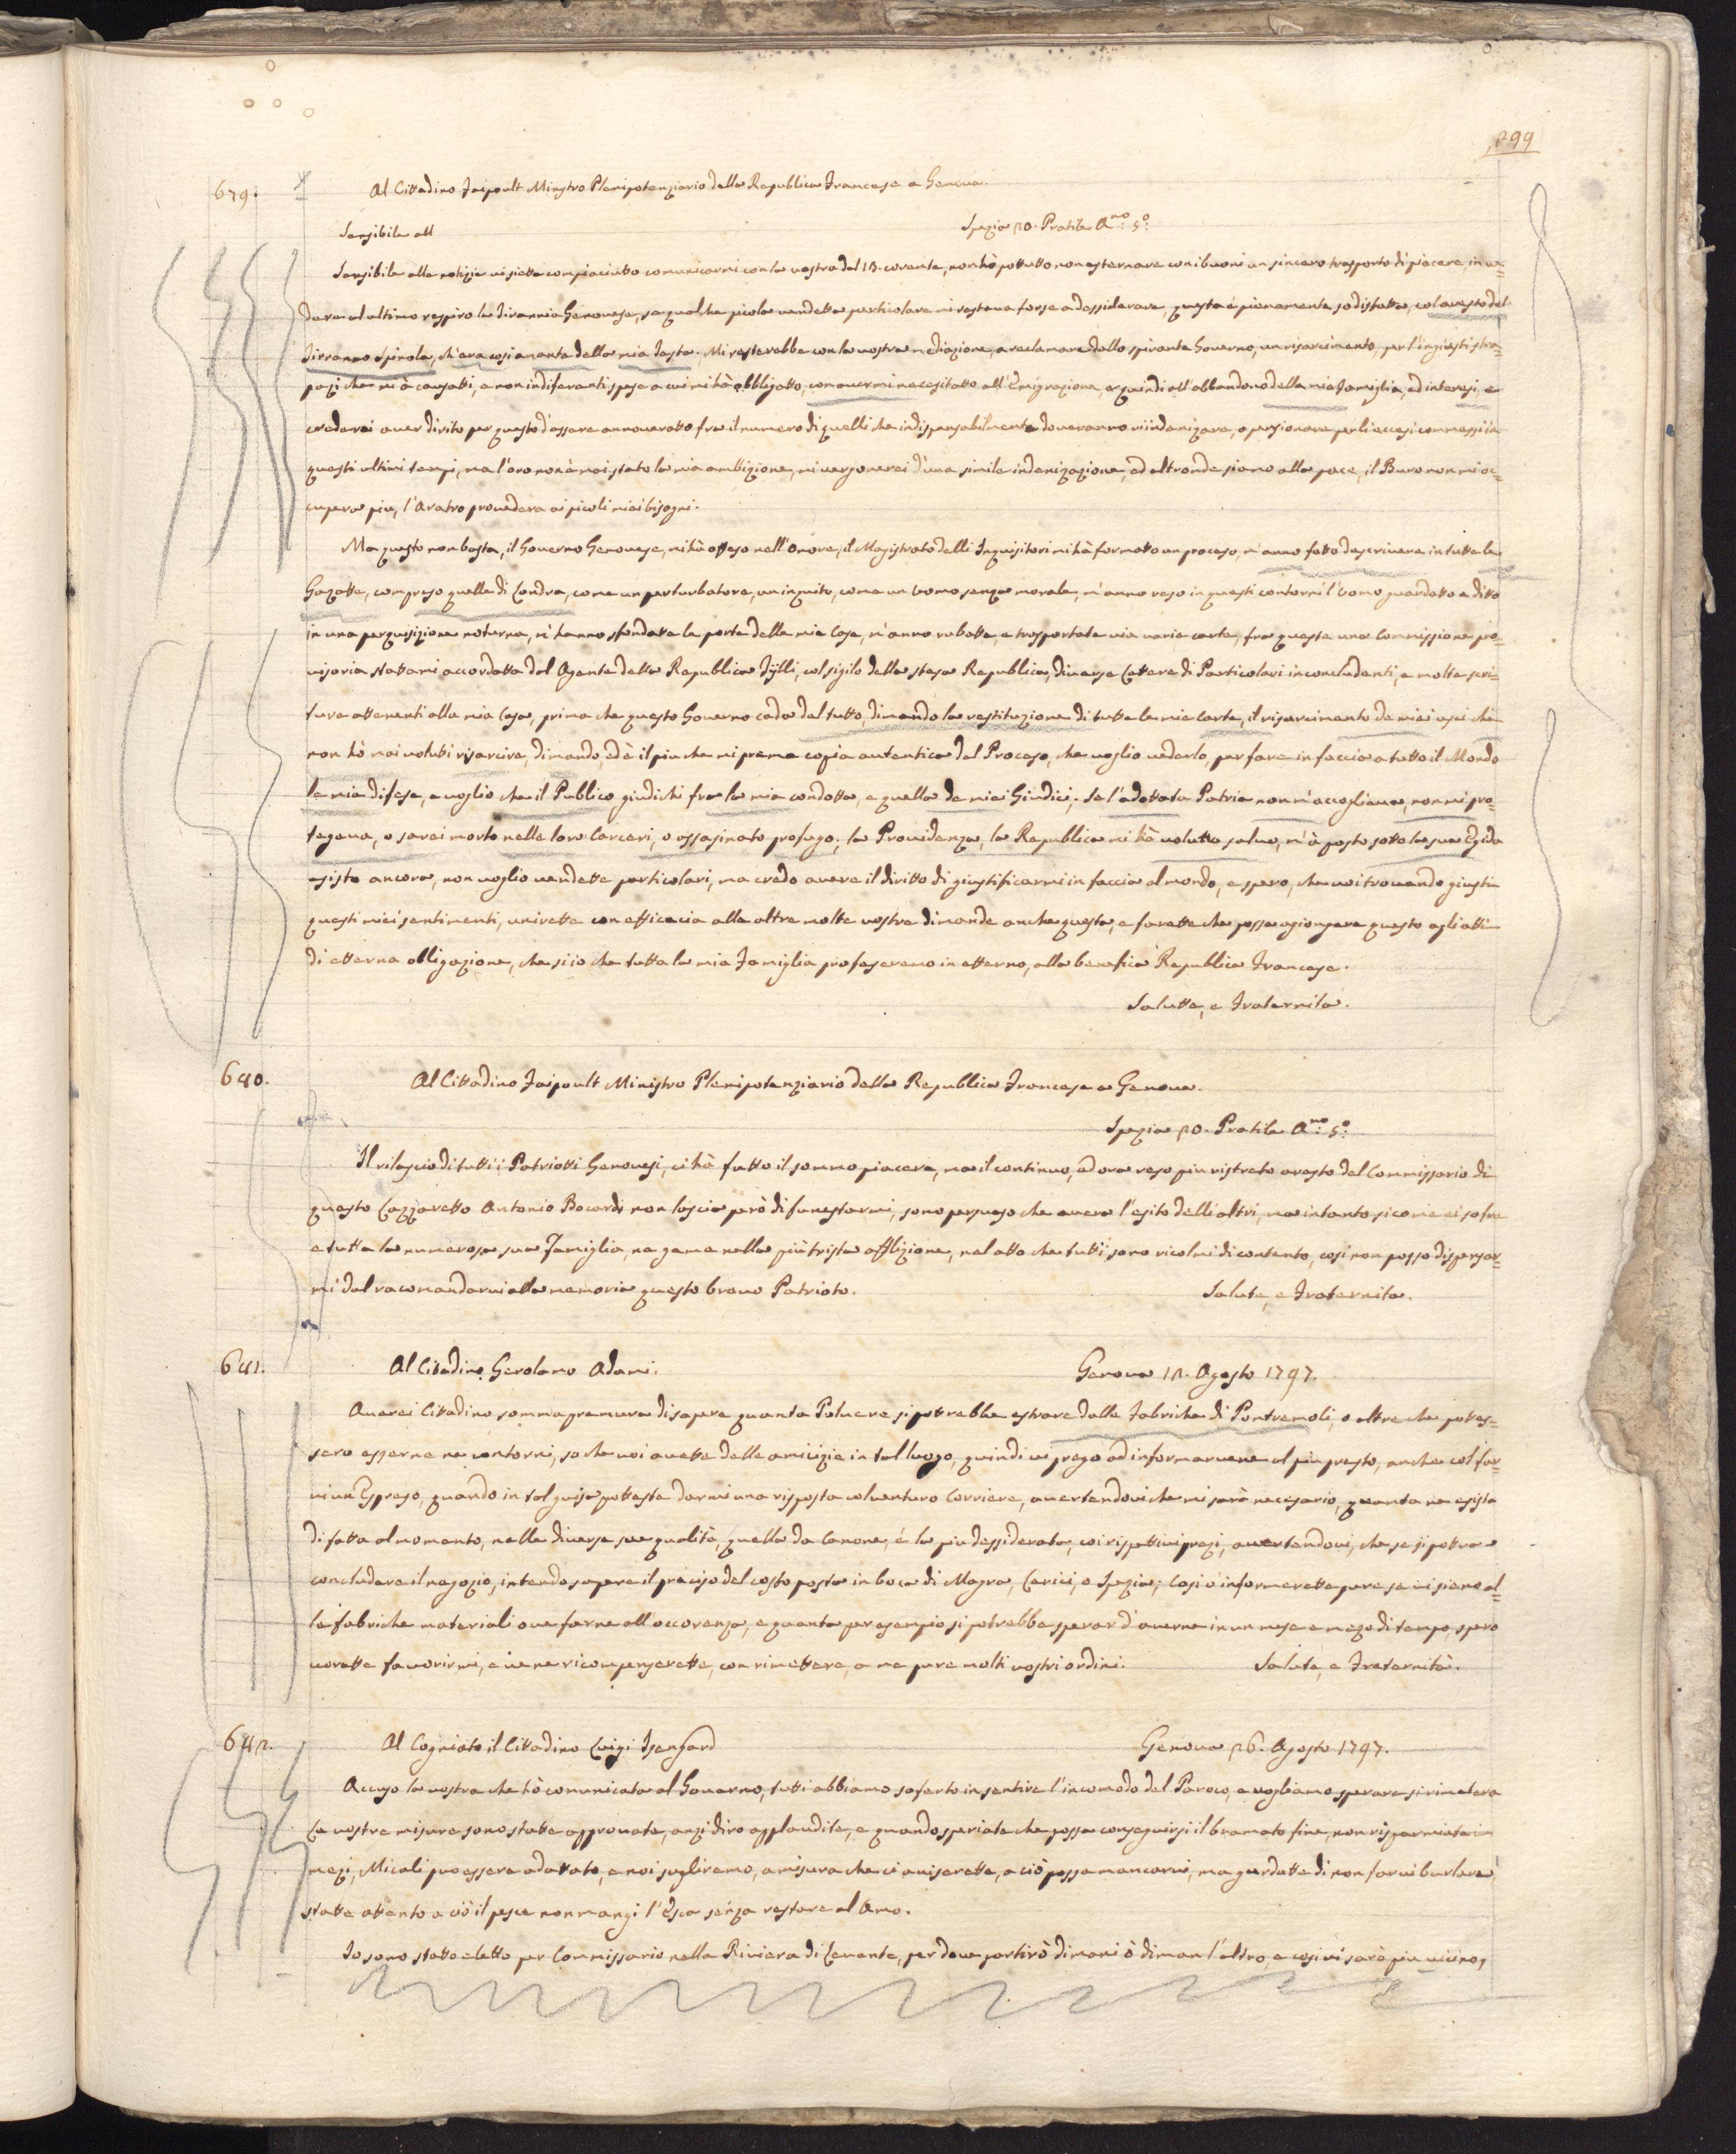 299
679. Al Cittadino Faipoult Ministro Plenipotenziario della Republica Francese a Genova.
Sensibile all Spezia 20. Pratile Anno: 5o:
Sensibile alle notizie vi siette compiaciutto comunicarmi con la vostra del 18. corente, non hò pottutto non esternare con i buoni un sincero trasporto di piacere, in ve=
dere al ultimo respiro la Tirannia Genovese, se qualche picola vendetta particolare mi restava forse a dessiderare, questa è pienamente sodisfatta, col aresto del
Tirranno Spinola, ch'era così amante della mia Testa. Mi resterebbe con la vostra mediazione, a reclamare dallo spirante Governo, un risarcimento, per l'ingiusti stra=
pazi che mi à causatti, e non indiferanti spese a cui mi hà obbligatto, con avermi necesitatto all'Emigrazione, e quindi all'abbandono della mia Famiglia, ed interesi, e
crederei aver dirito per questo d'essere annoveratto fra il numero di quelli che indispensabilmente doveranno indenizare, o pensionare per li eccesi commessi in
questi ultimi tempi, ma l'oro non è mai stato la mia ambizione, mi vergonerei d'una simile indenizazione, ed altronde siamo alla pace, il Buro non mi oc=
cupera piu, l'Aratro provederà ai picoli miei bisogni.
Ma questo non basta, il Governo Genovese, mi hà offeso nell'onore, il Magistrato delli Inquisitori mi hà formatto un proceso, m'anno fatto descrivere in tutte le
Gazette, compreso quella di Londra, come un perturbatore, un inquito, come un Uomo senza morale, m'anno reso in questi contorni l'Uomo guardatto a ditto
in una perquisizione noturna, m'hanno sfondatte le porte della mia Casa, m'anno rubatte, e trasportate via varie carte, fra queste una Commissione pro=
visoria stattami accordatta dal Agente della Republica Tylli, col sigilo della stesa Republica, diverse Lettere di Particolari inconcludenti, e molte scri=
ture attenenti alla mia Casa, prima che questo Governo cada del tutto, dimando la restituzione di tutte le mie Carte, il risarcimento de miei usci che
non hò mai voluti risarcire, dimando, ed è il piu che mi preme copia autentica del Proceso, che voglio vederlo, per fare in faccia a tutto il Mondo
le mie difese, e voglio che il Publico giudichi fra la mia condotta, e quella de miei Giudici; Se l'adottata Patria non m'accoglieva, non mi pro=
tegeva, o sarei morto nelle loro Carceri, o assasinato profugo; la Providenza, la Republica mi hà volutto salvo, m'à posto sotto la sua Egida
esisto ancora, non voglio vendette particolari, ma credo avere il diritto di giustificarmi in faccia al mondo, e spero, che voi trovando giusti
questi miei sentimenti, unirette con efficacia alle altre molte vostre dimande anche questa, e farette che possa agiongere questo agli atti
di etterna obligazione, che si io che tutta la mia Famiglia profesereno in etterno, alla benefica Republica Francese.
Salutte, e Fraternita.
680. Al Cittadino Faipoult Ministro Plenipotenziario della Republica Francese a Genova.
Spezia 20. Pratile Anno: 5o:
Il rilascio di tutti i Patriotti Genovesi, ci hà fatto il sommo piacere, ma il continuo, ed ora reso piu ristreto aresto del Commissario di
questo Lazzaretto Antonio Bocardi non lascia però di funestarmi, sono persuaso che avera l'esito delli altri, ma intanto sicome ei sofre
e tutta la numerosa sua Famiglia, ne geme nella più trista afflizione, nel atto che tutti sono ricolmi di contento, così non posso dispensar=
mi dal racomandarvi alla memoria questo bravo Patrioto. Salute, e Fraternita.
681. Al Citadino Gerolamo Adami. Genova 12. Agosto 1797.
Averei Cittadino somma premura di sapere quanta Polvere si potrebbe estrare dalle Fabriche di Pontremoli, o altre che pottes=
sero esserne ne contorni, so che voi avette delle amicizie in tal luogo, quindi vi prego ad informarvene al piu presto, anche col far=
vi un Espreso, quando in tal guisa potteste darmi una risposta col venturo Corriere, avertendovi che mi sarà necesario, quanta ne esista
di fatta al momento, nelle diverse sue qualità, quella da Canone, é la piu dessiderata, coi rispettivi prezi, avertendovi, che se si pottra
concludere il negozio, intendo sapere il preciso del costo posta in boca di Magra, Lerici, o Spezia; Così v'informerette pure se vi siano al=
le fabriche materiali ove farne all'occorenza, e quanta per esempio si potrebbe sperar d'averne in un mese e mezo di tempo, spero
vorette favorirmi, e ve ne ricompenserette, con rimettere, a me pure molti vostri ordini. Salute, e Fraternità.
682. Al Cogniato il Cittadino Luigi Isengard Genova 26. Agosto 1797.
Accuso la vostra che hò comunicata al Governo, tutti abbiamo soferto in sentire l'incomodo del Paroco, e vogliamo sperare si rimetera
Le vostre misure sono statte approvate, anzi diro applaudite, e quando speriate che possa conseguirsi il bramato fine, non risparmiate i
mezi, Micali puo essere adatato, e noi supliremo, a misura che ci aviserette, a ciò possa mancarvi, ma gurdatte di non farvi burlare
statte attento a ciò il pesce non mangi l'Esca senza restare al Amo.
Io sono statto eletto per Commissario nella Riviera di Levante, per dove partirò dimani ò diman l'altro, e così vi sarò piu vicino,